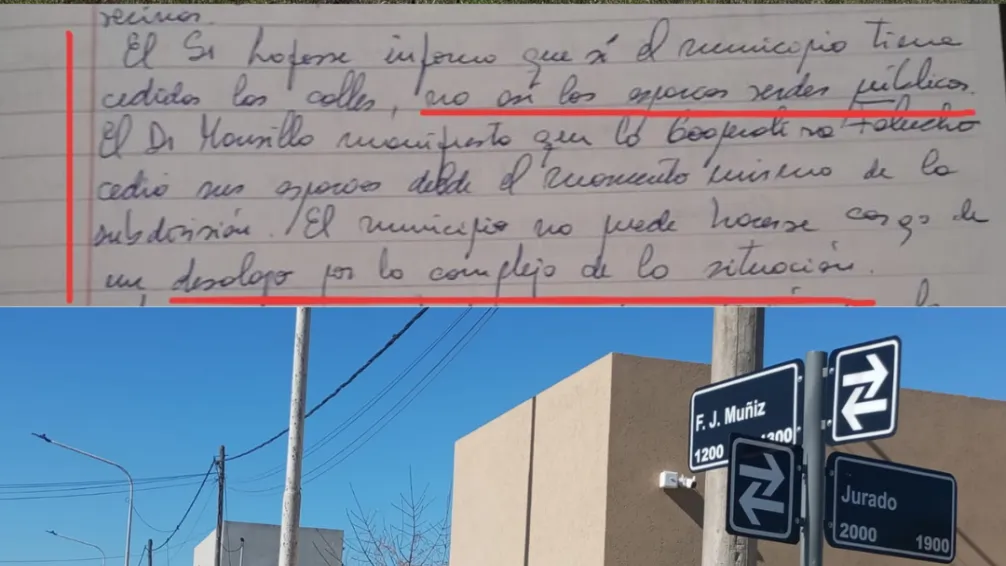 vecinos.
El Sr Lafosse informo que si el municipio tiene
cedidas las calles, no asi los espacios verdes públicos.
El Dr Mansilla manifesto que la Cooperativa Falucho
cedió sus espacios desde el momento mismo de la
subdivisión. El municipio no puede hacerse cargo de
un desalojo por lo complejo de la situación.
F. J. Muñiz
1200 1300
Jurado
2000 1900